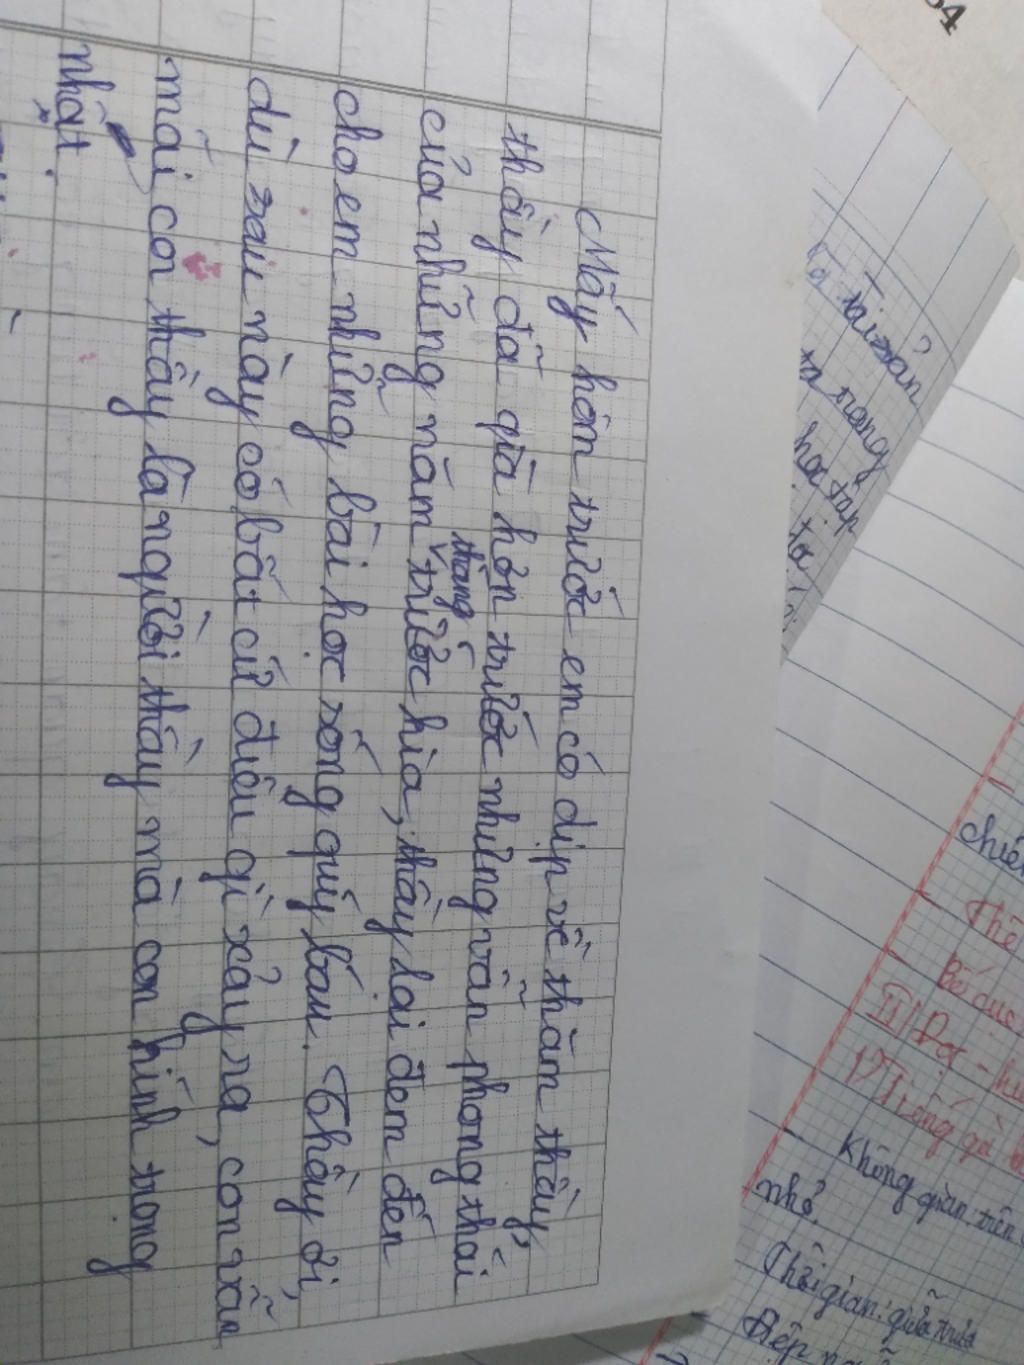 Mấy hôm trước em có dịp về thăm thầy,
thầy đã già hơn trước nhưng vẫn phong thái
của những năm tháng trước kia, thầy lại đem đến
cho em những bài học sống quý báu. Thầy ơi,
dù sau này có bất cứ điều gì xảy ra, con vẫn
mãi coi thầy là người thầy mà con kính trọng
nhất.
tài sản
trong
học tập
Bố cục
Không gian: trên
nhỏ.
Thời gian: giữa trưa
54